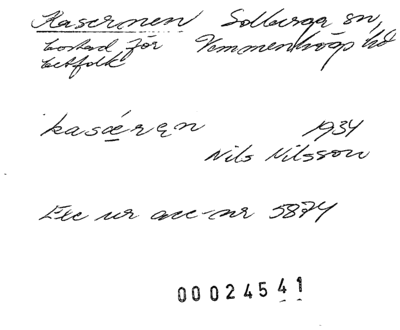 Kasernen Solberga sn,
bostad för Vemmenhögs hd
betfolk
kasǽrən 1934
Nils Nilsson
Exc ur acc-nr 5874
00024541